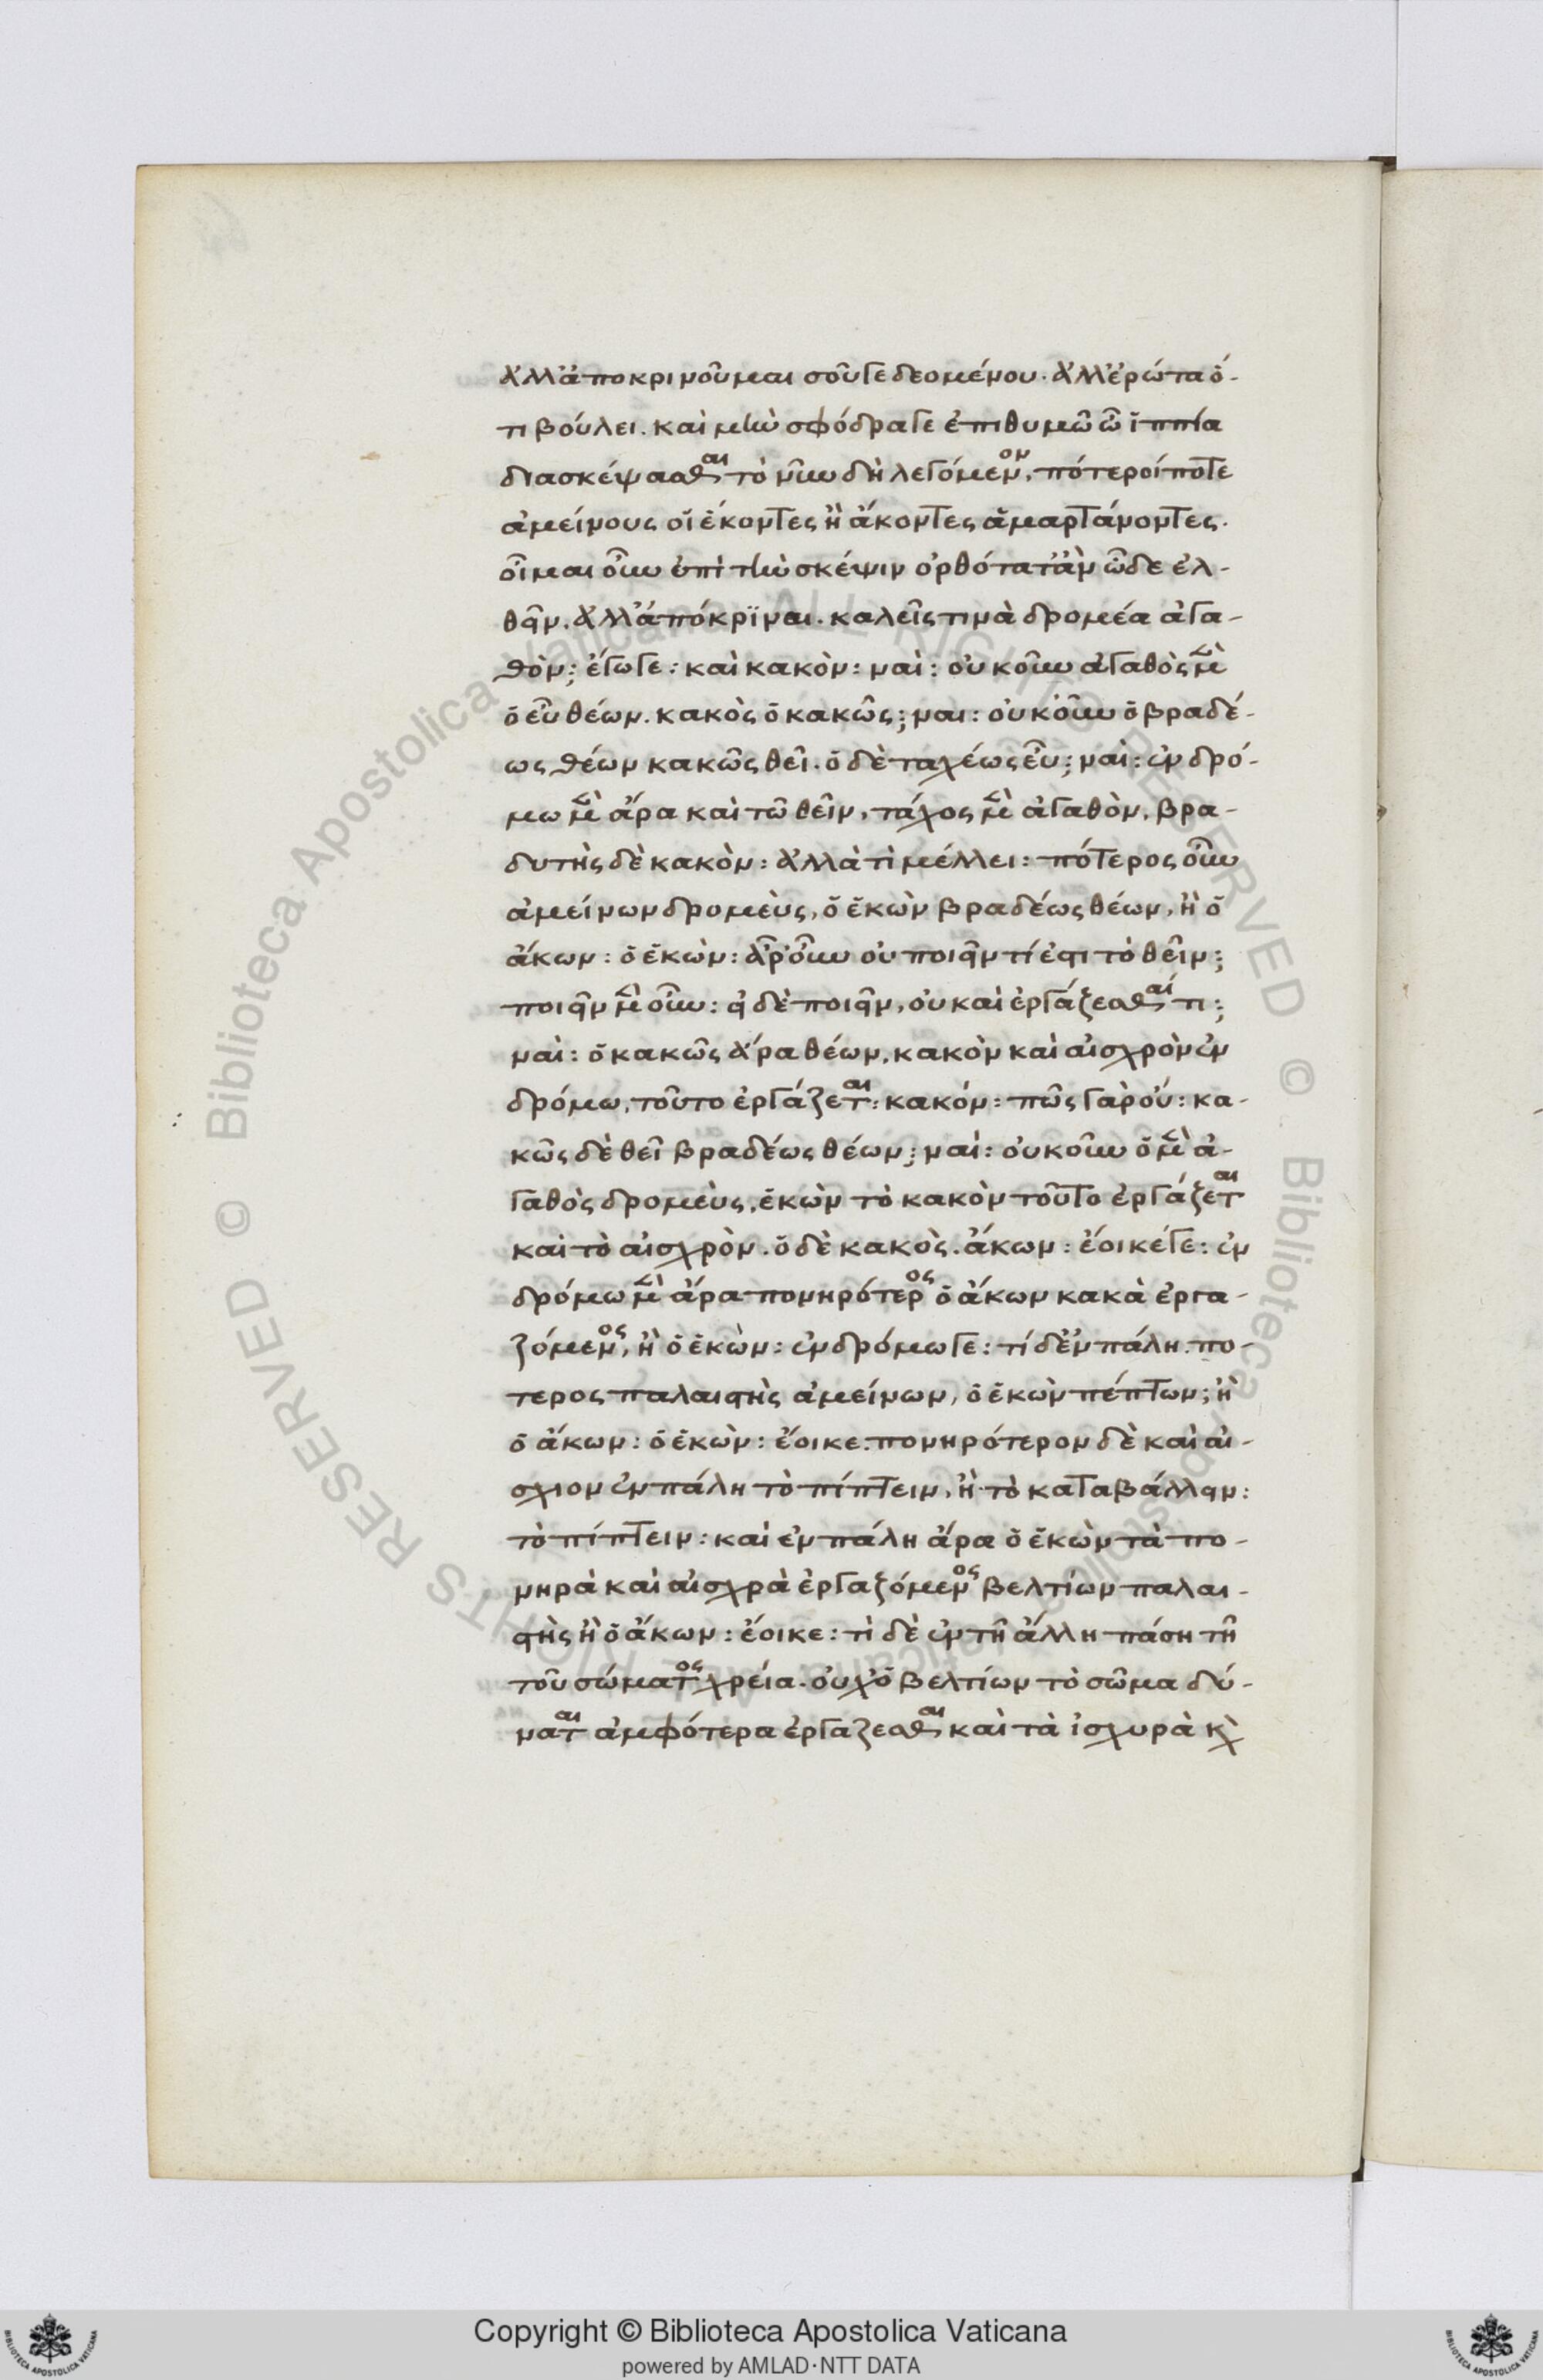 ἀλλ' ἀποκρινοῦμαι σοῦ γε δεομένου. ἀλλ' ἐρώτα ὅ-
τι βούλει. καὶ μὴν σφόδρα γε ἐπιθυμῶ ὦ ἱππία
διασκέψασθαι τὸ νῦν δὴ λεγόμενον, πότεροί ποτε
ἀμείνους οἱ ἑκόντες ἢ ἄκοντες ἁμαρτάνοντες.
οἶμαι οὖν ἐπὶ τὴν σκέψιν ὀρθότατ' ἂν ὧδε ἐλ-
θεῖν. ἀλλ' ἀπόκριναι. καλεῖς τινὰ δρομέα ἀγα-
θὸν; ἔγωγε: καὶ κακὸν: ναὶ: οὐκοῦν ἀγαθὸς μὲν
ὁ εὖ θέων. κακὸς ὁ κακῶς; ναι: οὐκοῦν ὁ βραδέ-
ως θέων κακῶς θεῖ. ὁ δὲ ταχέως εὖ; ναὶ: ἐν δρό-
μω μὲν ἄρα καὶ τῶ θεῖν, τάχος μὲν ἀγαθὸν, βρα-
δυτὴς δὲ κακὸν: ἀλλὰ τὶ μέλλει: πότερος οὖν
ἀμείνων δρομεὺς, ὁ ἑκὼν βραδέως θέων, ἢ ὁ
ἄκων: ὁ ἑκὼν: ἆρ' οὖν οὐ ποιεῖν τί ἐστι τὸ θεῖν;
ποιεῖν μὲν οὖν: εἰ δὲ ποιεῖν, οὐ καὶ ἐργάζεσθαί τι;
ναὶ: ὁ κακῶς ἄρα θέων, κακὸν καὶ αἰσχρὸν ἐν
δρόμω, τοῦτο ἐργάζεται: κακόν: πῶς γὰρ οὔ: κα-
κῶς δὲ θεῖ βραδέως θέων; ναὶ: οὐκοῦν ὁ μὲν ἀ-
γαθὸς δρομεὺς, ἑκὼν τὸ κακὸν τοῦτο ἐργάζεται
καὶ τὸ αἰσχρὸν. ὁ δὲ κακὸς. ἄκων: ἔοικέ γε: ἐν
δρόμω μὲν ἄρα πονηρότερος ὁ ἄκων κακὰ ἐργα-
ζόμενος, ἢ ὁ ἑκὼν: ἐν δρόμω γε: τί δ' ἐν πάλη. πο-
τερος παλαιστὴς ἀμείνων, ὁ ἑκὼν πέπτων; ἢ
ὁ ἄκων: ὁ ἑκὼν: ἔοικε: πονηρότερον δὲ καὶ αἰ-
σχιον ἐν πάλη τὸ πίπτειν, ἢ τὸ καταβάλλειν:
τὸ πίπτειν: καὶ ἐν πάλη ἄρα ὁ ἑκὼν τὰ πο-
νηρὰ καὶ αἰσχρὰ ἐργαζόμενος βελτίων παλαι-
στὴς ἢ ὁ ἄκων: ἔοικε: τὶ δὲ ἐν τῆ ἄλλη πάση τῆ
τοῦ σώματος χρεία. οὐχ ὁ βελτίων τὸ σῶμα δύ-
ναται ἀμφότερα ἐργαζεσθαι καὶ τὰ ἰσχυρὰ καὶ
Copyright © Biblioteca Apostolica Vaticana
powered by AMLAD·NTT DATA